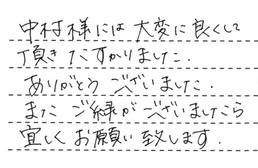 中村様には大変に良くして
頂きたすかりました.
ありがとうございました.
またご縁がございましたら
宜しくお願い致します.